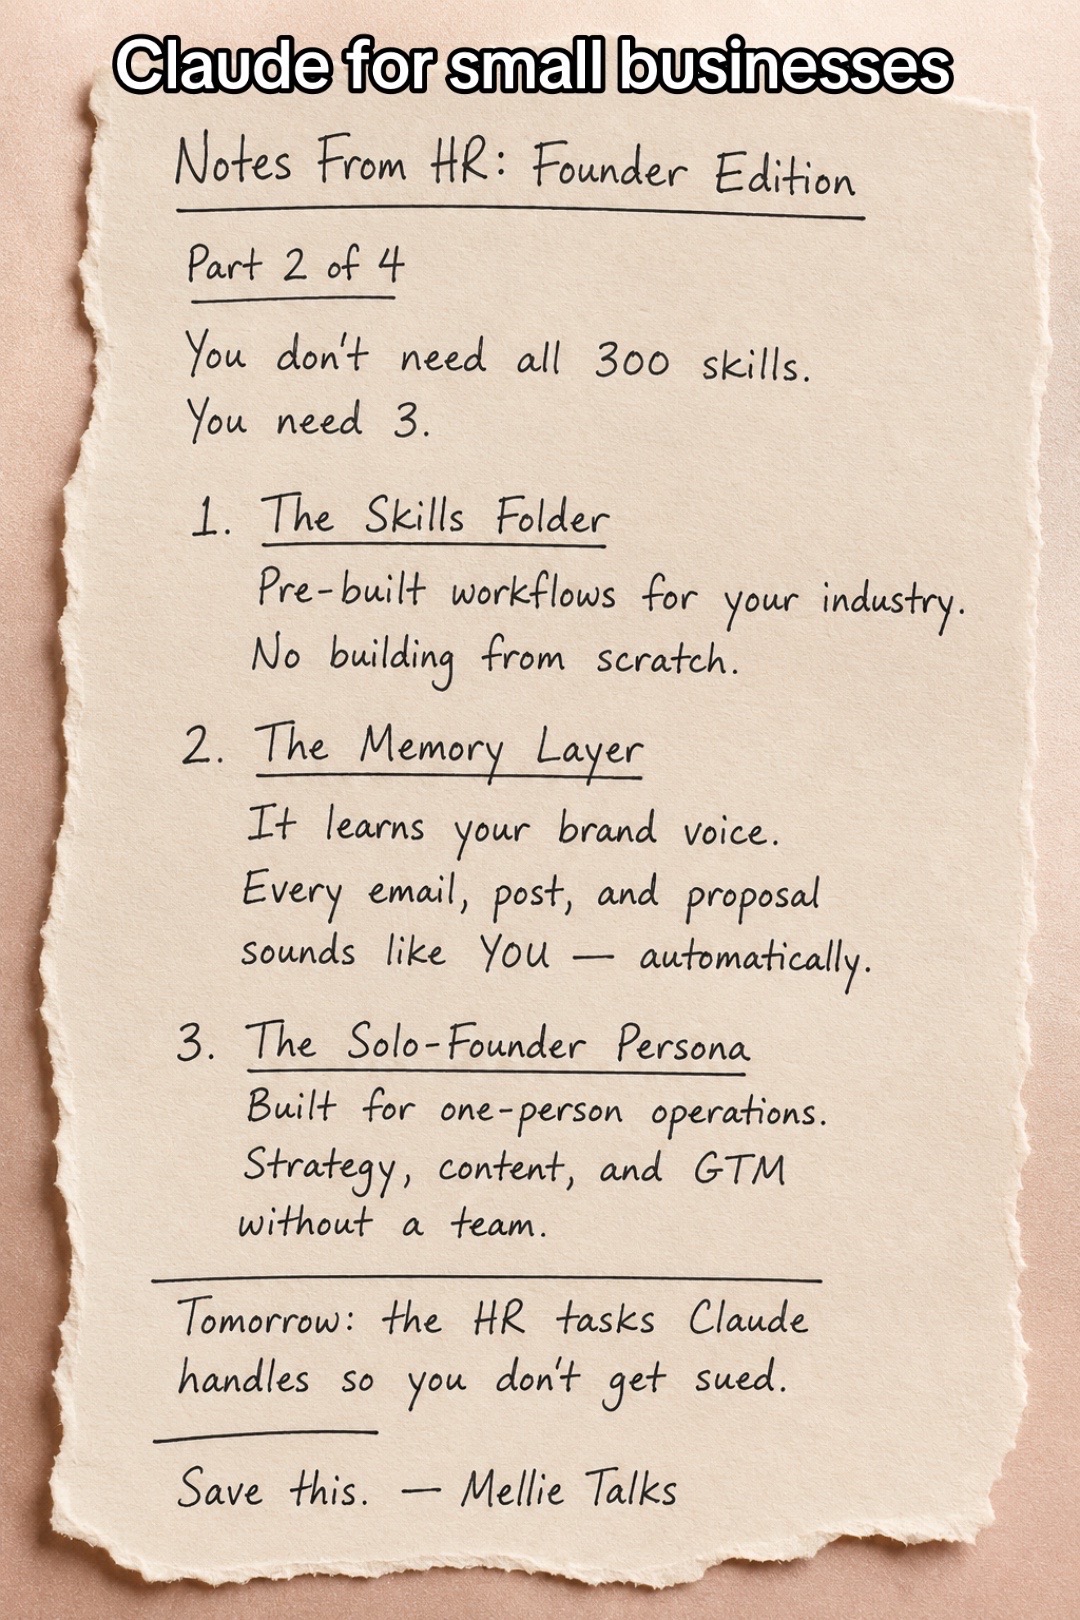 Claude for small businesses
Notes From HR: Founder Edition
Part 2 of 4
You don't need all 300 skills.
You need 3.
1. The Skills Folder
Pre-built workflows for your industry.
No building from scratch.
2. The Memory Layer
It learns your brand voice.
Every email, post, and proposal
sounds like YOU — automatically.
3. The Solo-Founder Persona
Built for one-person operations.
Strategy, content, and GTM
without a team.
Tomorrow: the HR tasks Claude
handles so you don't get sued.
Save this. — Mellie Talks